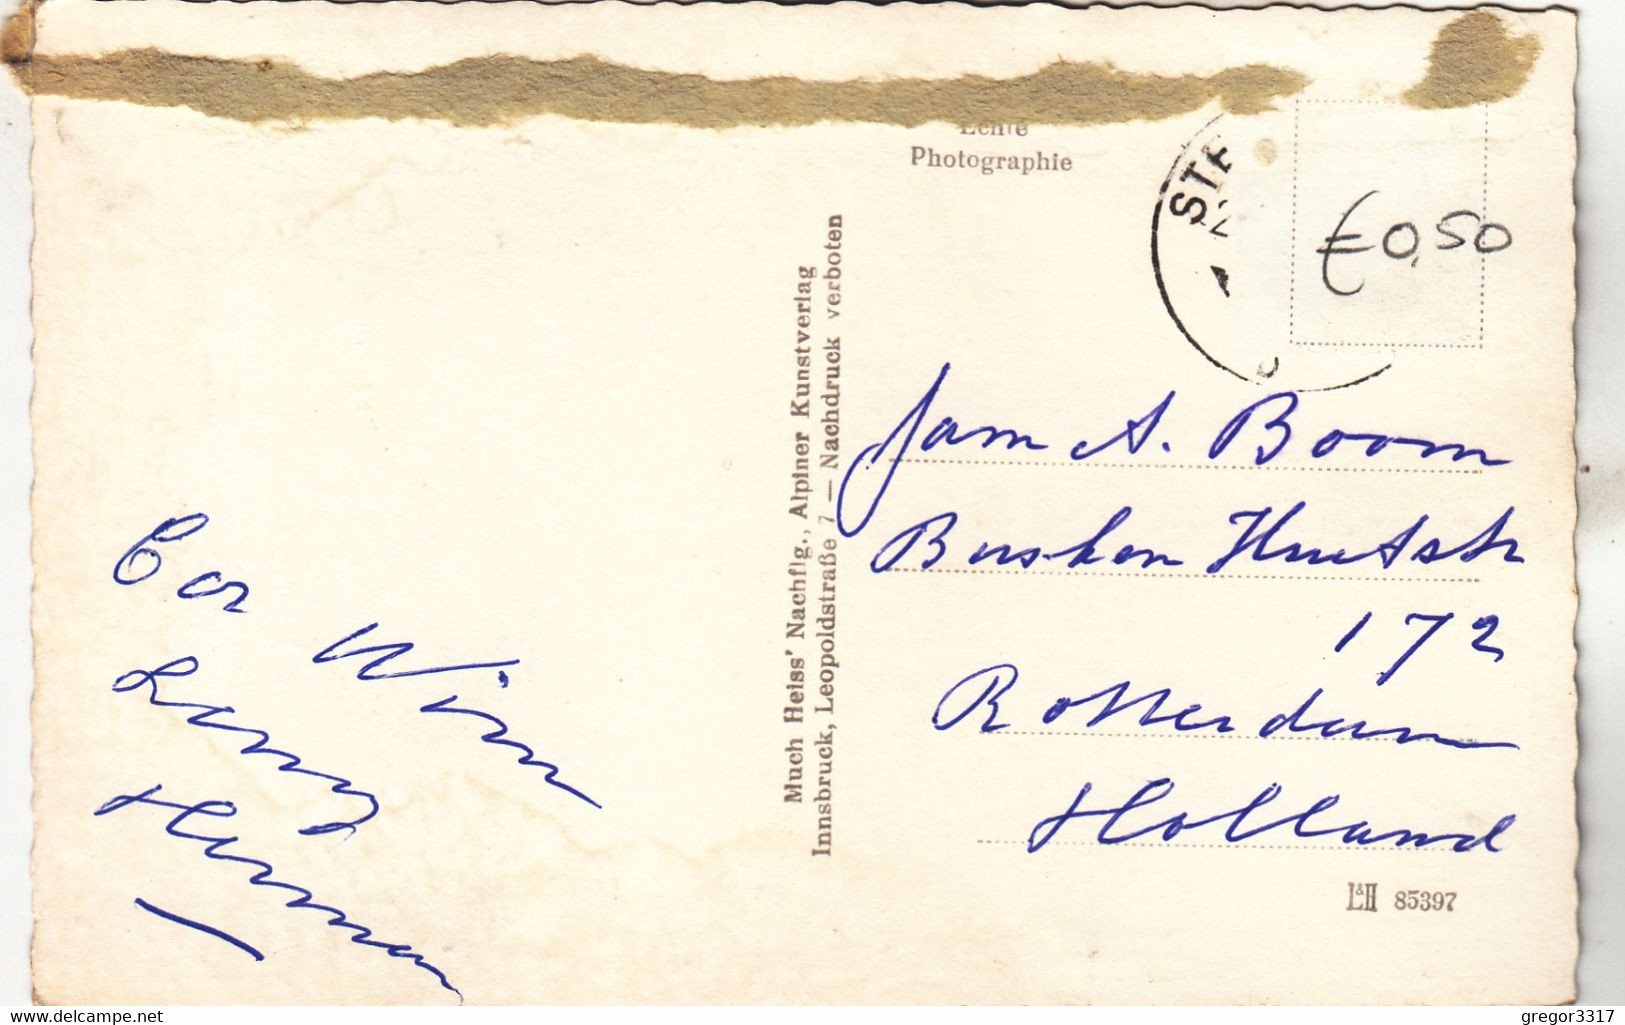 Echte
Photographie
STE
€0,50
Much Heiss' Nachflg., Alpiner Kunstverlag
Innsbruck, Leopoldstraße 7 — Nachdruck verboten
Fam A. Boom
Busken Huetstr
172
Rotterdam
Holland
Cor Wim
Leny
Herman
L&H 85397
www.delcampe.net
gregor3317